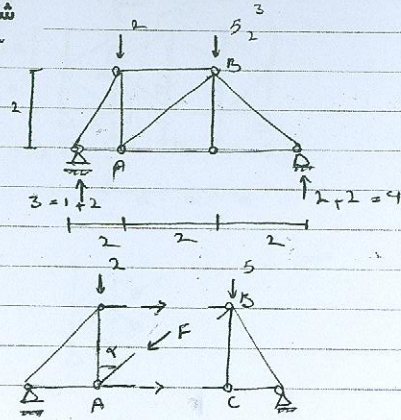 2 5 3 2
B
2
A
3 = 1 + 2 2 + 2 = 4
2 2 2
2 5
B
α F
A C